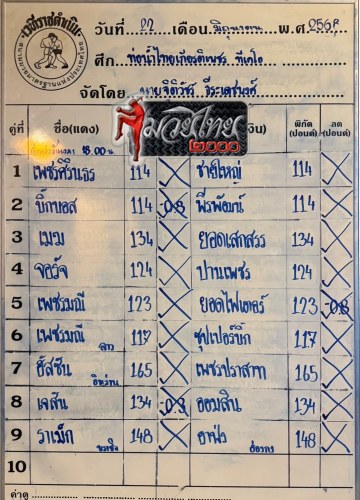 เวทีราชดำเนิน
วันที่ 22 เดือน มิถุนายน พ.ศ. 256
ศึก ท่อน้ำไทยเกียรติเพชร ทีเคโอ
จัดโดย นายจิตวีร์ จีระเดชนงค์
มวยไทย
๒๐๐๐
คู่ที่ ชื่อ(แดง) พิกัด (ปอนด์) ลด (ปอนด์)
18.00 น.
1 เพชรศิรินธร 114 ชาติใหญ่ 114
2 บิ๊กบอส 114 -0.8 พีรพัฒน์ 114
3 เมฆ 134 ยอดเสกสรร 134
4 จอร์จ 124 ปานเพชร 124
5 เพชรมณี 123 ยอดไฟเตอร์ 123 -0.8
6 เพชรมณี ลาว 117 ซุปเปอร์บิ๊ก 117
7 ฮัสซัน อิหร่าน 165 เพชรปราสาท 165
8 เจสัน 134 -0.8 ออมสิน 134
9 ราเม็ก 148 อาฟง ฮ่องกง 148
10